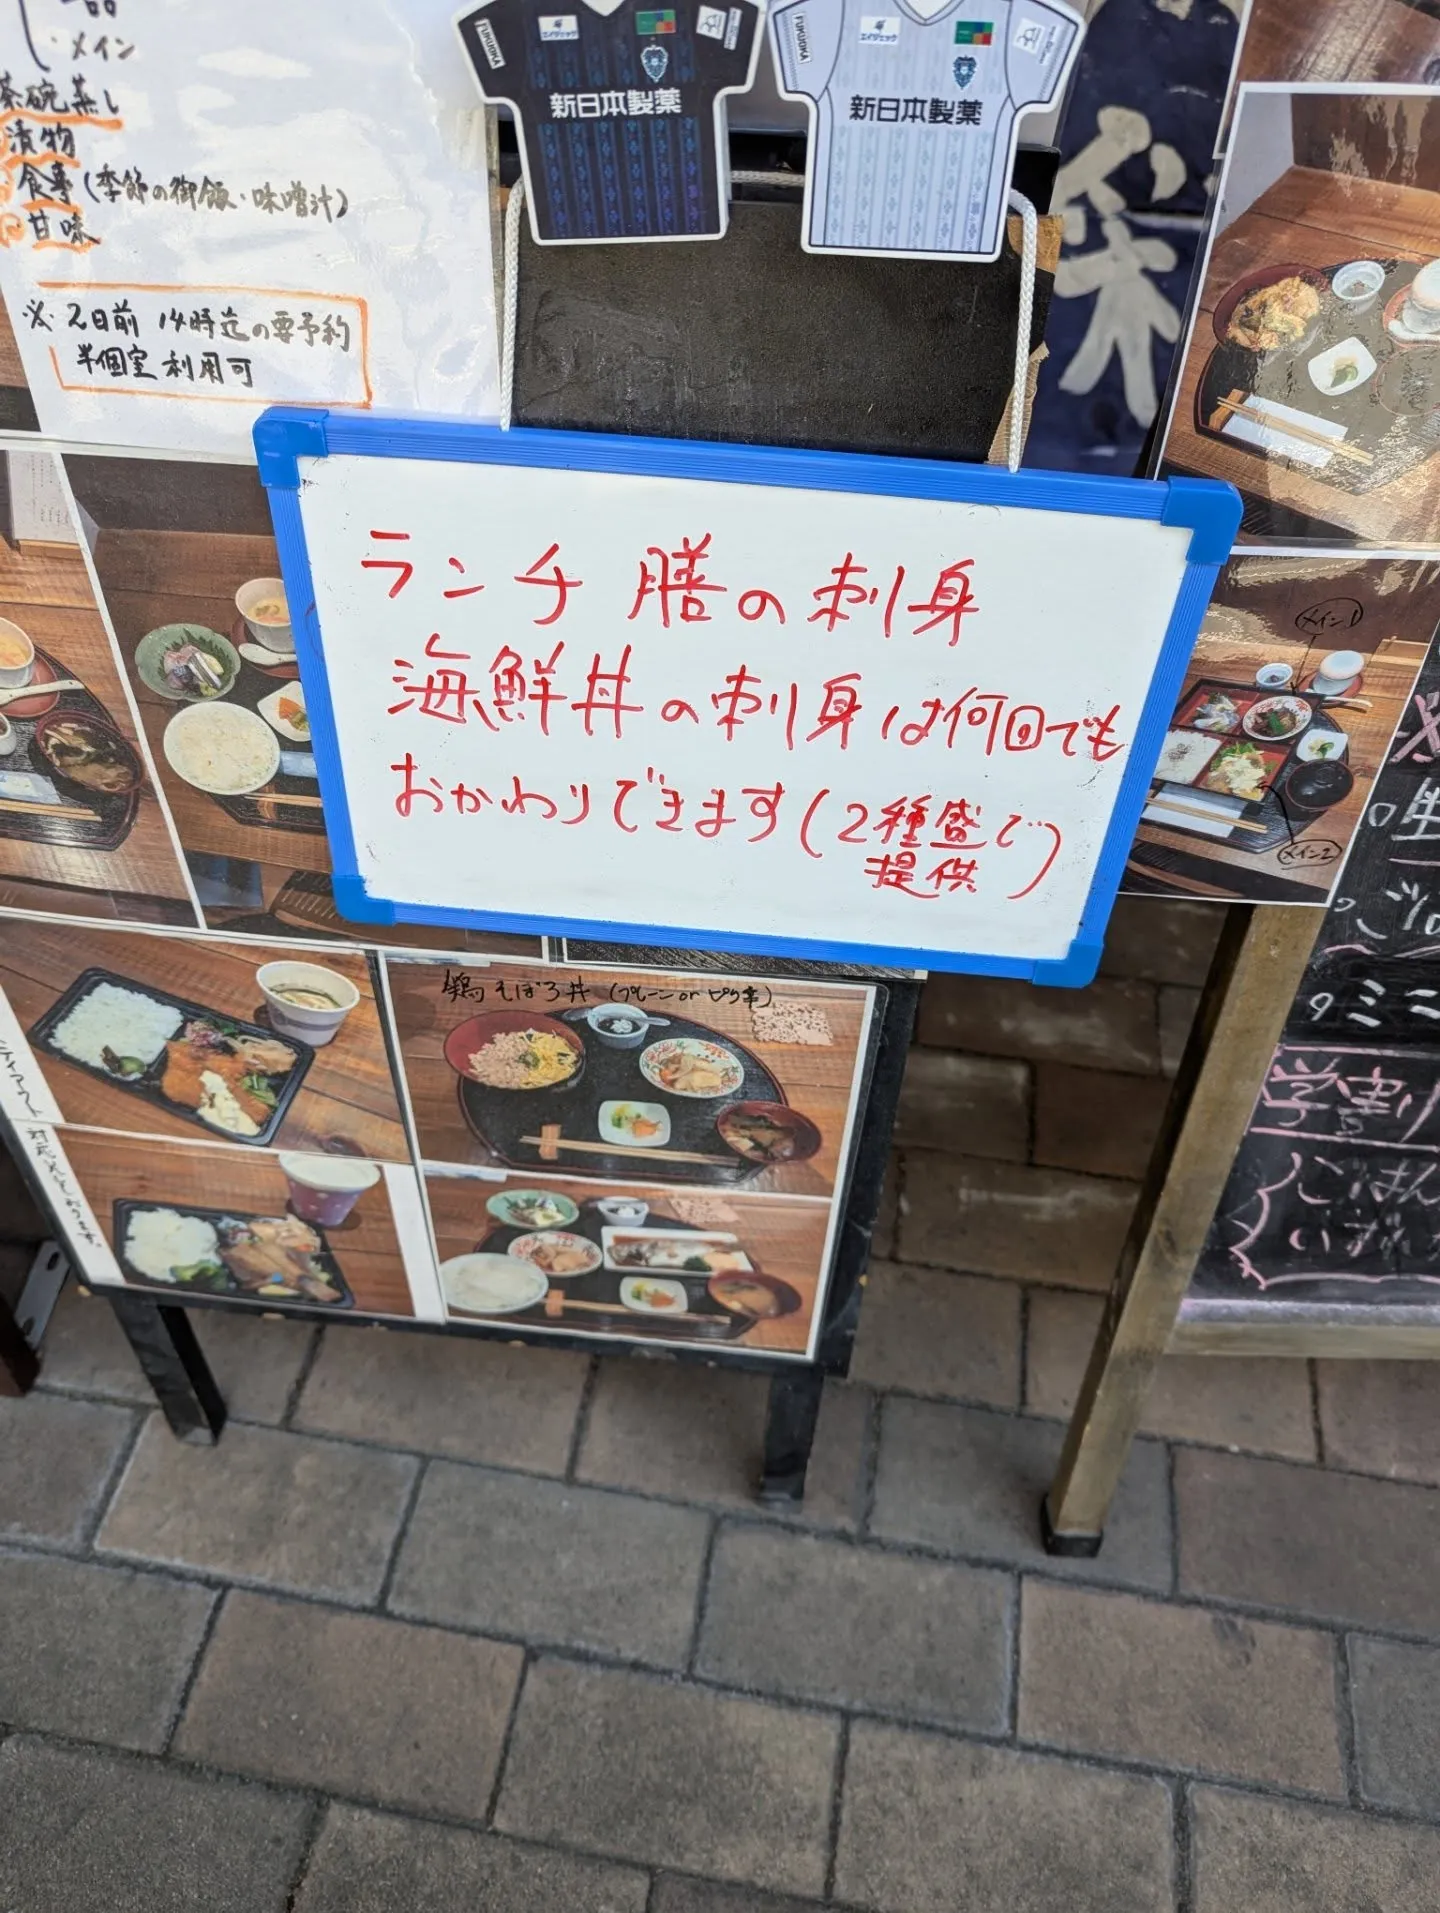 メイン
茶碗蒸し
漬物
食事(季節の御飯・味噌汁)
甘味
※2日前 14時迄の要予約
半個室利用可
FUKUOKA
エイジェック
新日本製薬
FUKUOKA
エイジェック
新日本製薬
ランチ膳の刺身
海鮮丼の刺身は何回でも
おかわりできます(2種盛で
提供)
メイン1
メイン2
鶏そぼろ丼 (プレーン or ピリ辛)
対応しております。
学割
ごはん